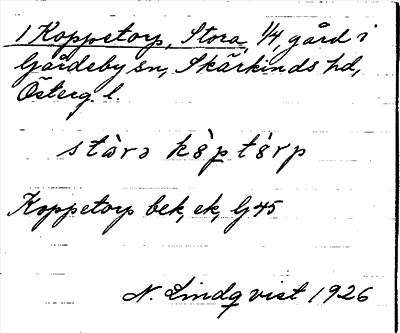 1 Koppetorp, Stora, 1/4, gård i
Gårdeby sn, Skärkinds hd,
Österg. l.
stòrə kòp tórp
Koppetorp bek, ek, G 45
N. Lindqvist 1926